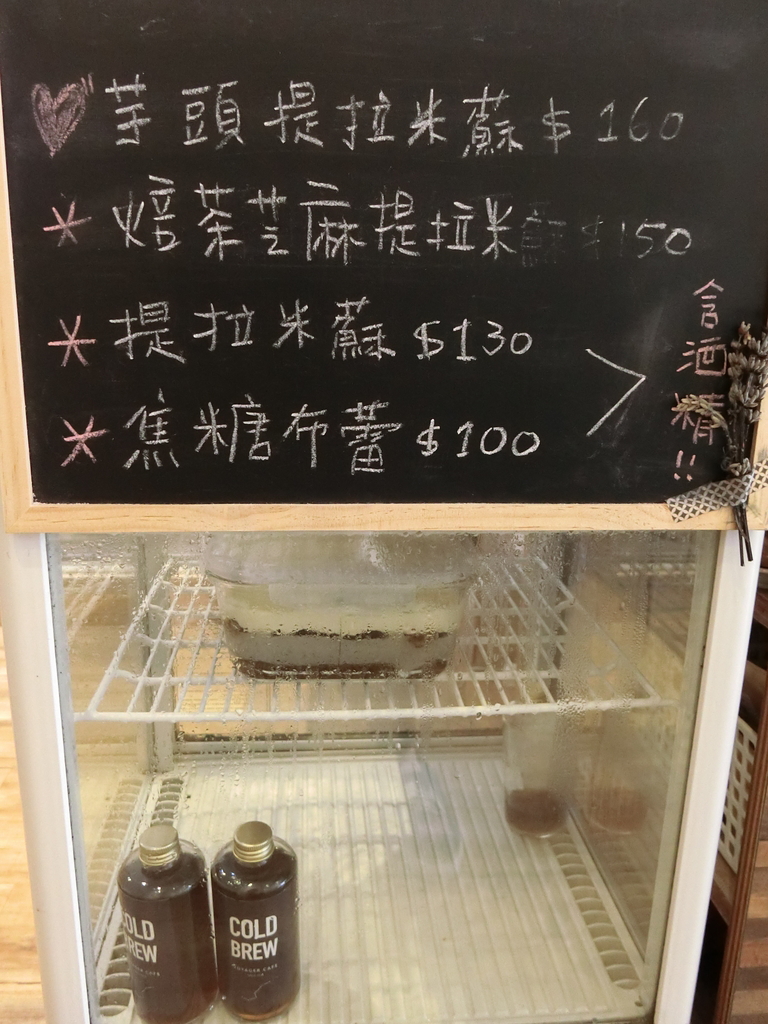 芋頭提拉米蘇 $160
* 焙茶芝麻提拉米蘇 $150
* 提拉米蘇 $130
* 焦糖布蕾 $100
> 含酒精!!
COLD
BREW
COLD
BREW
VOYAGER CAFE